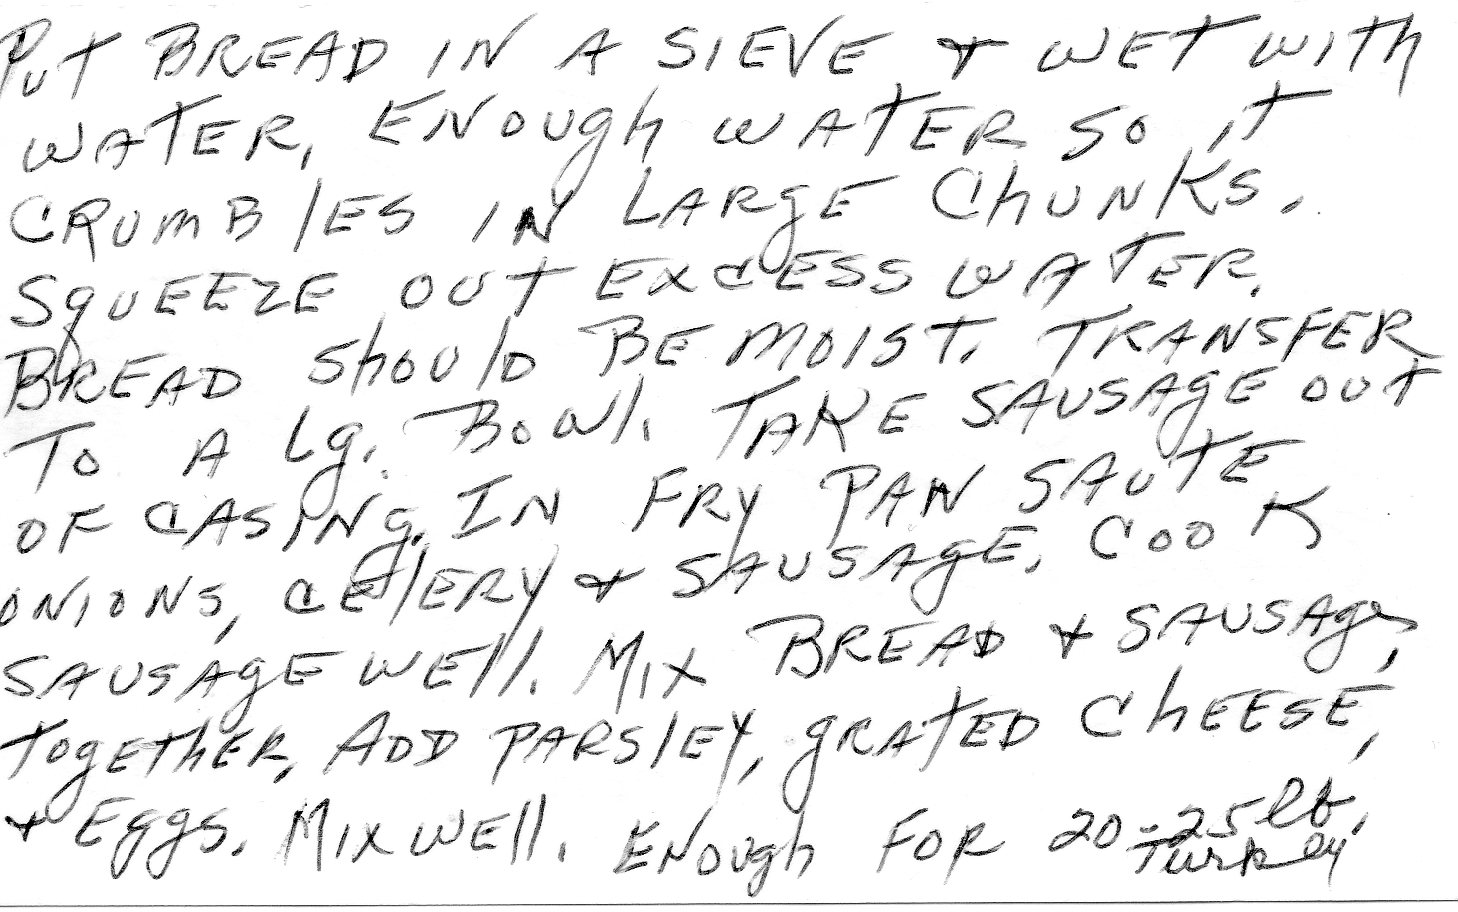 Put BREAD IN A SIEVE & WET WITh
WATER, ENOUgh WATER SO IT
CRUMBlES IN LARgE ChUNKS.
SqUEEZE OUT EXCESS WATER.
BREAD ShOUlD BE MOIST. TRANSFER
TO A Lg. BOWl. TAKE SAUSAgE OUT
OF CASINg. IN FRY PAN SAUTE
ONIONS, CElERY & SAUSAgE. COOK
SAUSAgE WEll. MIX BREAD & SAUSAge,
TOgEThER, ADD PARSlEY, gRATED ChEESE,
& Eggs. MIX WEll. ENOUgh FOR 20-25 lb.
Turkey